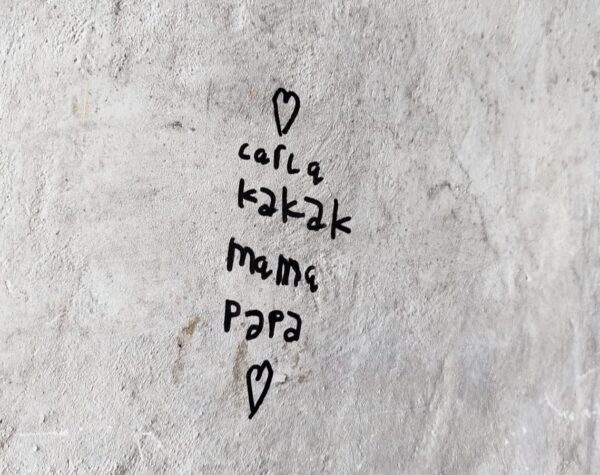 carla
kakak
mama
papa